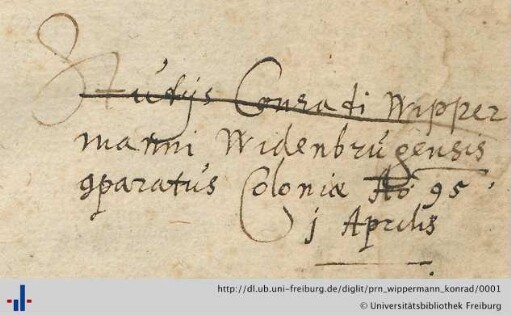 Stutijs Conradi Wipper
manni Widenbrugensis
9paratus Coloniæ Ao 95.
j Aprilis
http://dl.ub.uni-freiburg.de/diglit/prn_wippermann_konrad/0001
© Universitätsbibliothek Freiburg